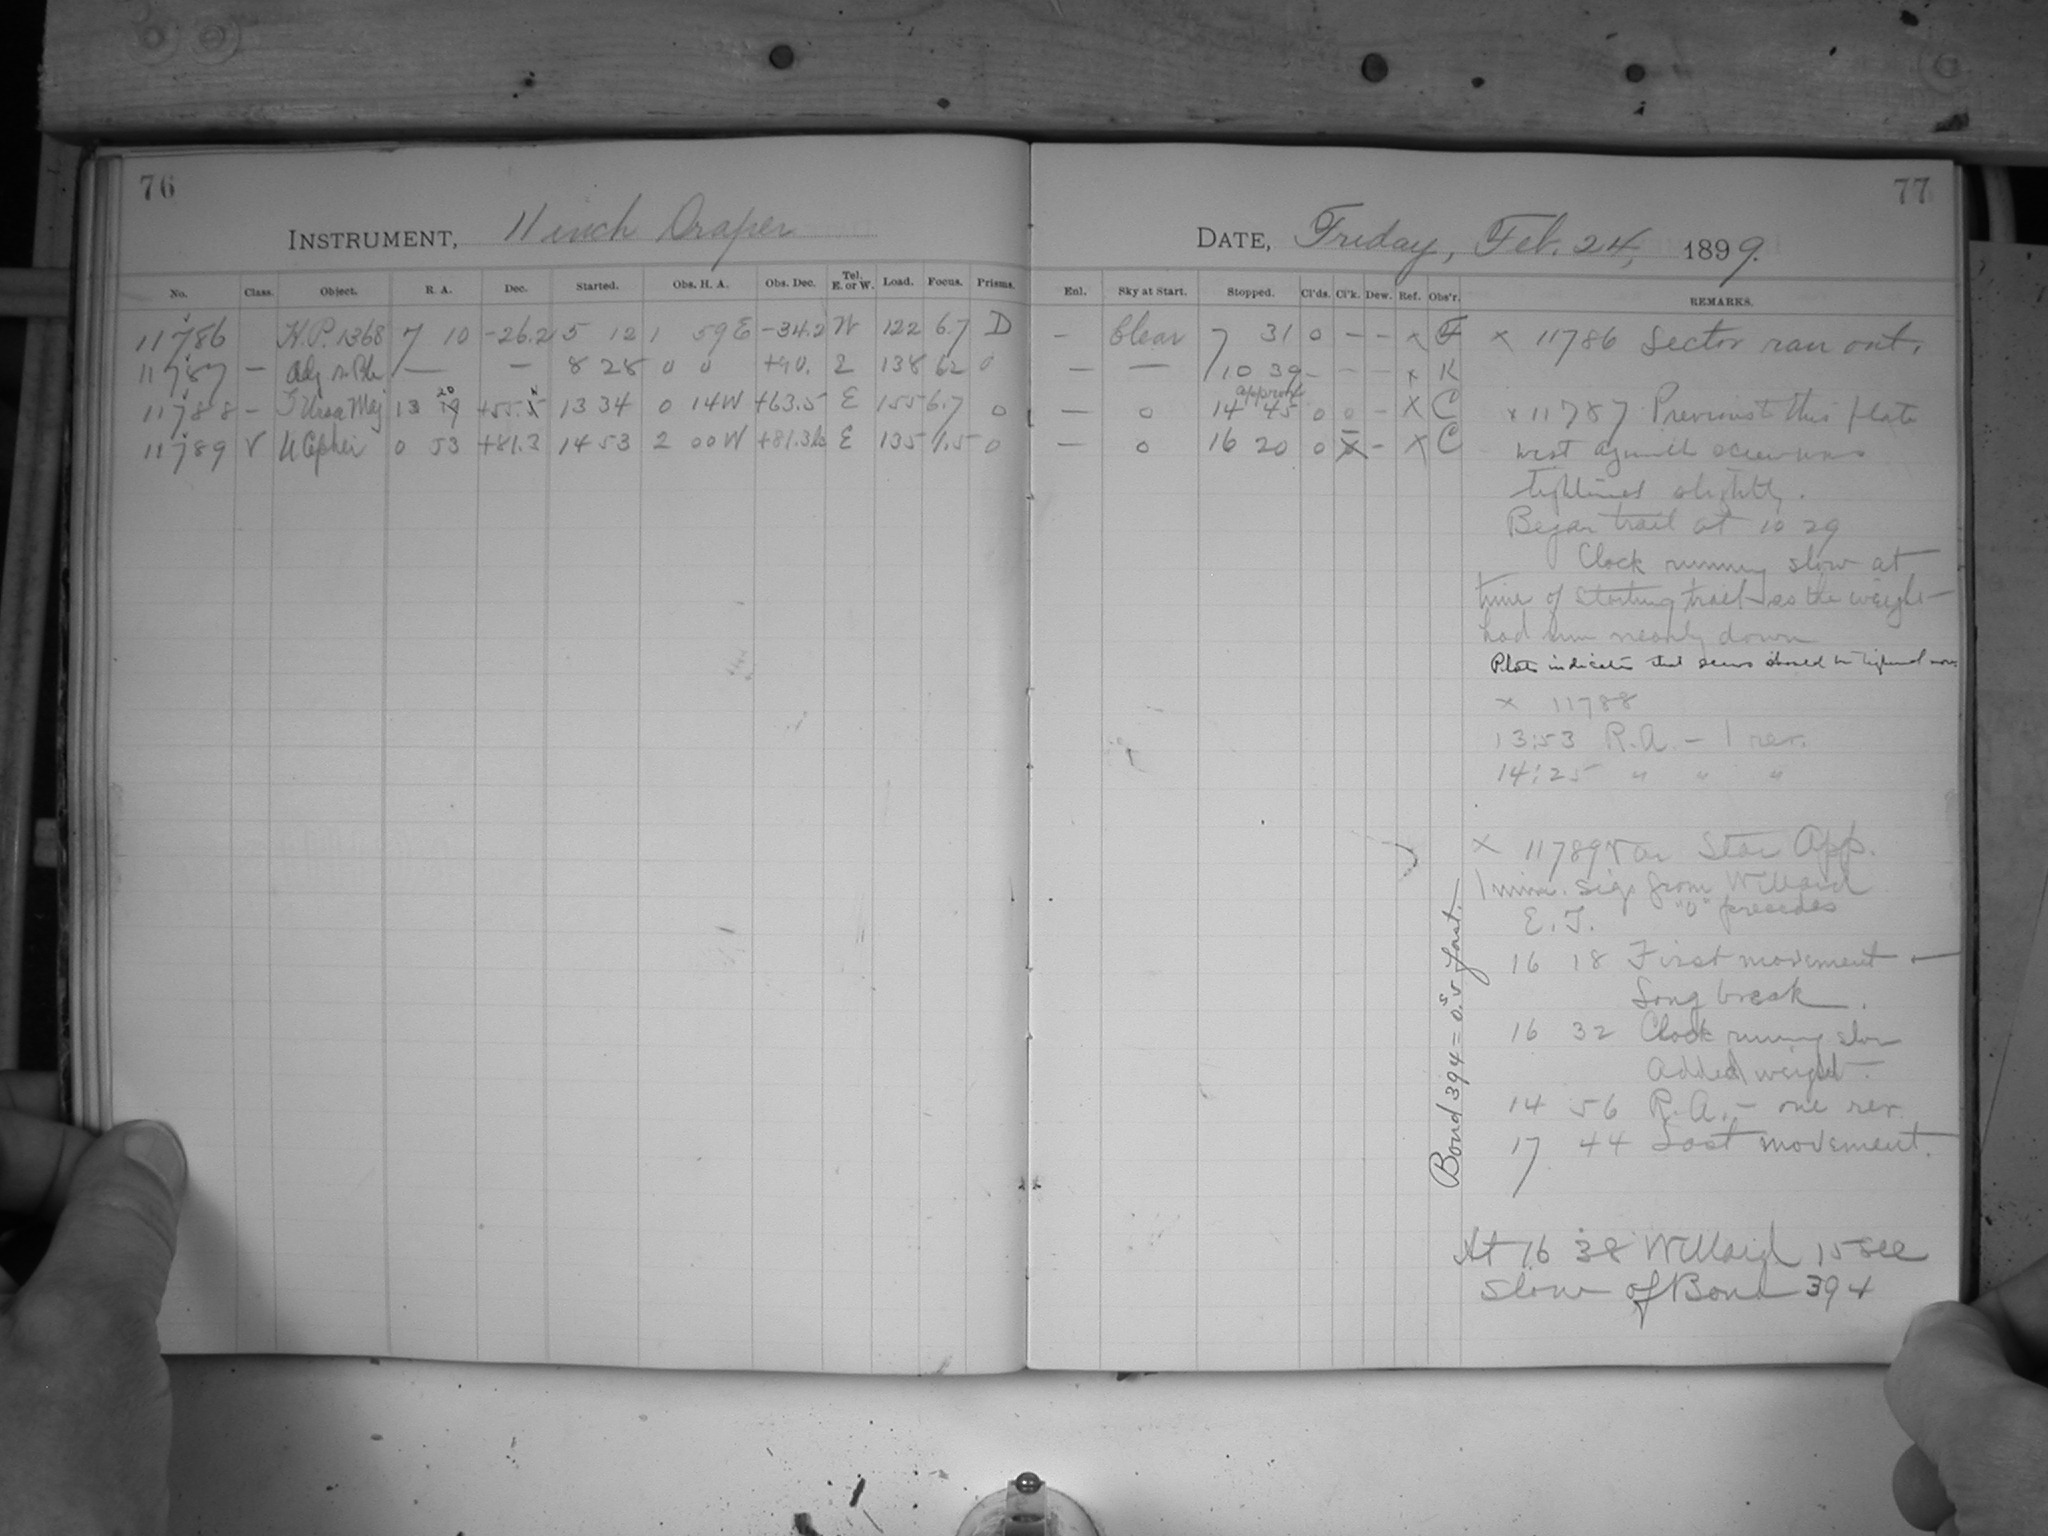 76
INSTRUMENT, 11 inch Draper
No. Class. Object. R. A. Dec. Started. Obs. H. A. Obs. Dec. Tel. E. or W. Load. Focus. Prisms.
11786 H.P. 1368 7 10 -26.2 5 12 1 59 E -34.2 W 122 6.7 D
11787 — Adj. — — 8 28 0 0 +90. E 138 62 0
11788 - ζ Ursa Maj 13 20 +55. 13 34 0 14 W +63.5 E 155 6.7 0
11789 V U Cephei 0 53 +81.3 14 53 2 00 W +81.3 E 135 0
77
DATE, Friday, Feb. 24, 1899.
Enl. Sky at Start. Stopped. Cl'ds. Cl'k. Dew. Ref. Obs'r. REMARKS.
— Clear 7 31 0 — — x F
— — 10 39 — — — x K
— 0 approx 14 45 0 0 — X C
— 0 16 20 0 — X C
x 11786 Sector ran out.
x 11787 Previous to this plate
west azimuth screw was
tightened slightly.
Began trail at 10 29
Clock running slow at
time of starting trail as the weight
had run nearly down
Plate indicates that screw should be tightened more
x 11788
13:53 R.A. — 1 rev.
14:25 " " "
x 11789 Var Star App.
1 min. sigs from Willard
"0" precedes
E. T.
16 18 First movement
Long break.
16 32 Clock running slow
Added weight.
14 56 R.A. — one rev.
17 44 Last movement.
Bond 394 = 0.5 fast.
At 16 38 Willard 15 sec
slow of Bond 394